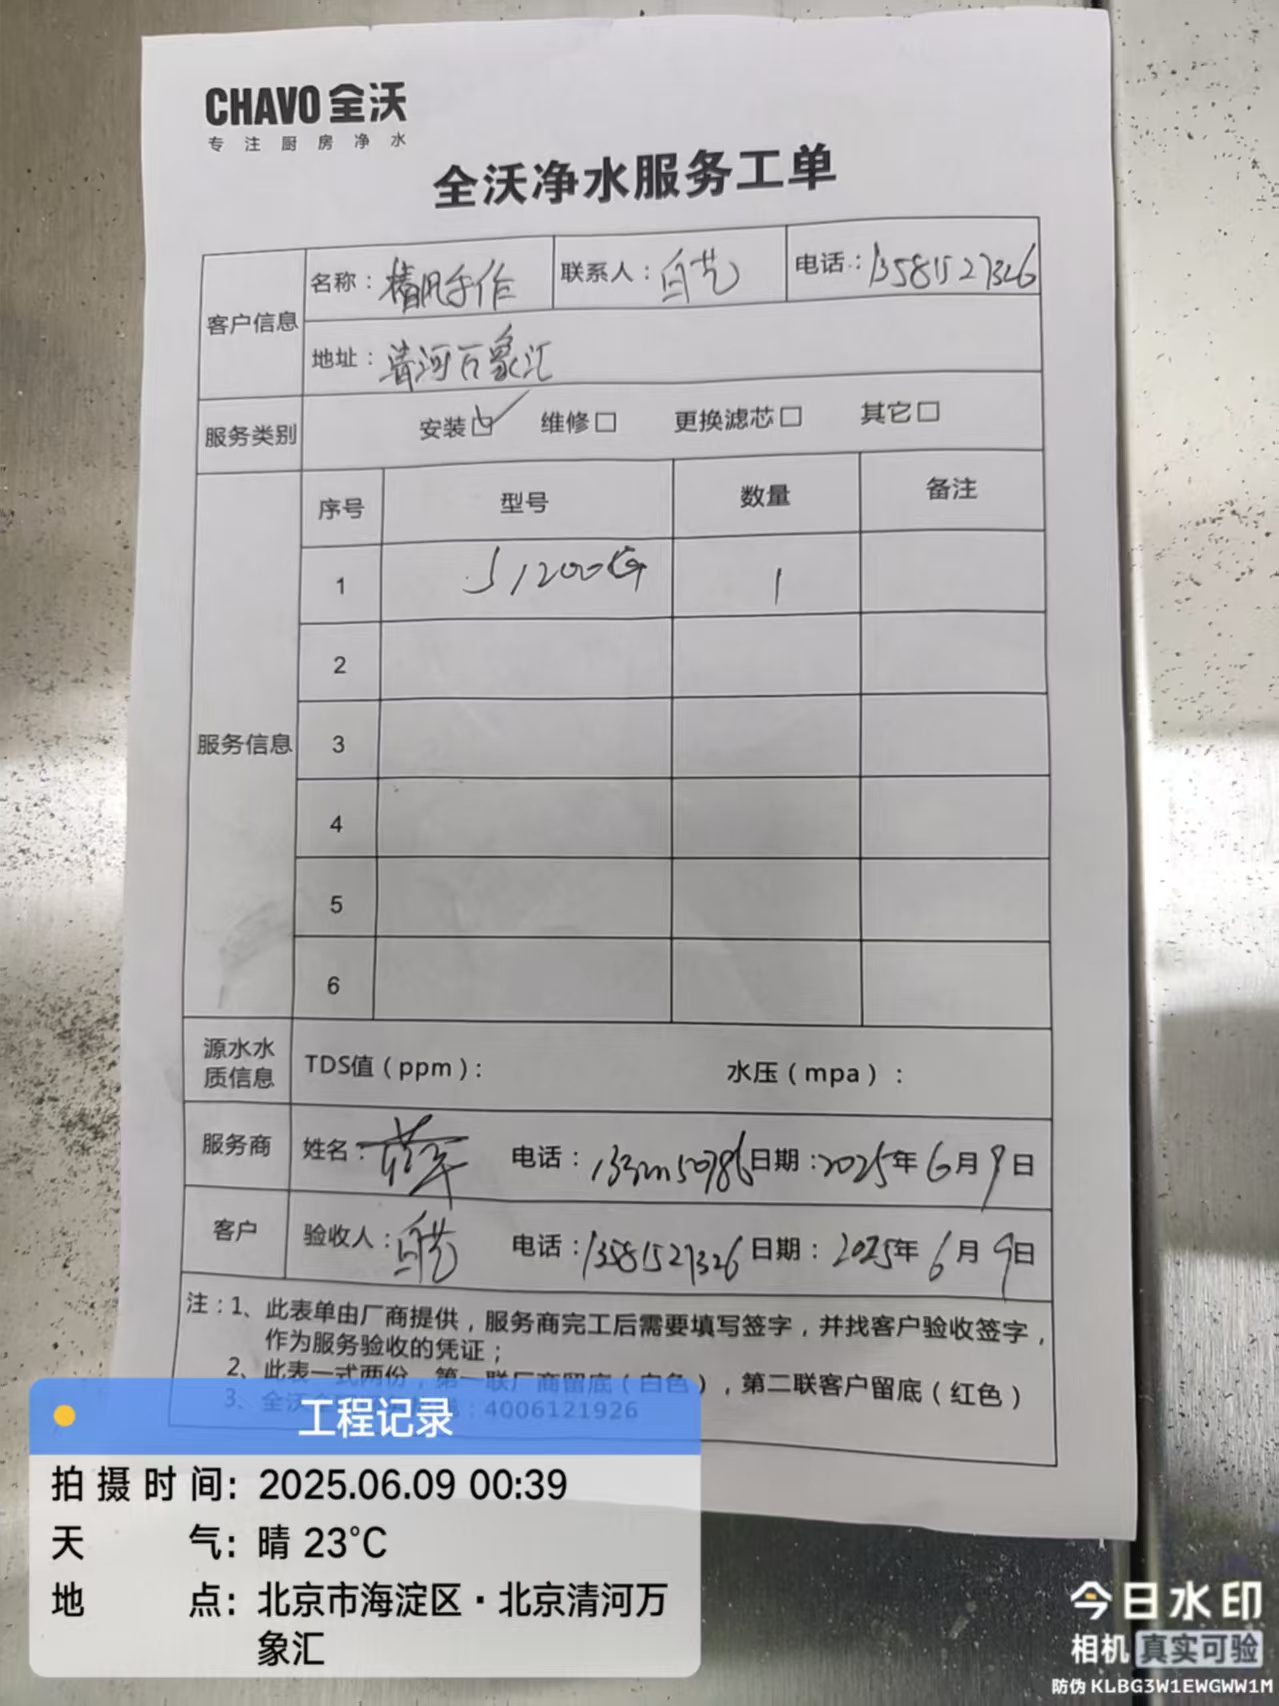 CHAVO 全沃
专注厨房净水
全沃净水服务工单
客户信息 名称：椿风手作 联系人：白艺 电话：13581527326
地址：清河万象汇
服务类别 安装☑ 维修□ 更换滤芯□ 其它□
服务信息 序号 型号 数量 备注
1 J1200G 1
2
3
4
5
6
源水水质信息 TDS值（ppm）： 水压（mpa）：
服务商 姓名： 电话： 日期：2025年6月9日
客户 验收人：白艺 电话：13581527326 日期：2025年6月9日
注：1、此表单由厂商提供，服务商完工后需要填写签字，并找客户验收签字，
作为服务验收的凭证；
2、此表一式两份，第一联厂商留底（白色），第二联客户留底（红色）
3、全沃 ：4006121926
工程记录
拍摄时间：2025.06.09 00:39
天气：晴 23°C
地点：北京市海淀区·北京清河万
象汇
今日水印
相机 真实可验
防伪 KLBG3W1EWGWW1M